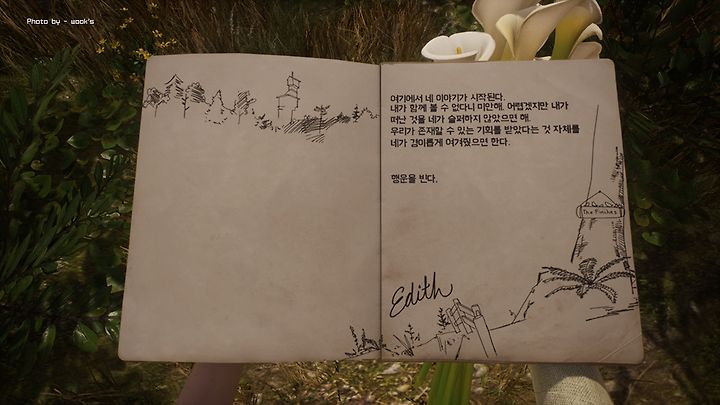 Photo by - wook's
여기에서 네 이야기가 시작된다.
내가 함께 볼 수 없다니 미안해. 어렵겠지만 내가
떠난 것을 네가 슬퍼하지 않았으면 해.
우리가 존재할 수 있는 기회를 받았다는 것 자체를
네가 경이롭게 여겨줬으면 한다.
행운을 빈다.
The Finches
Edith